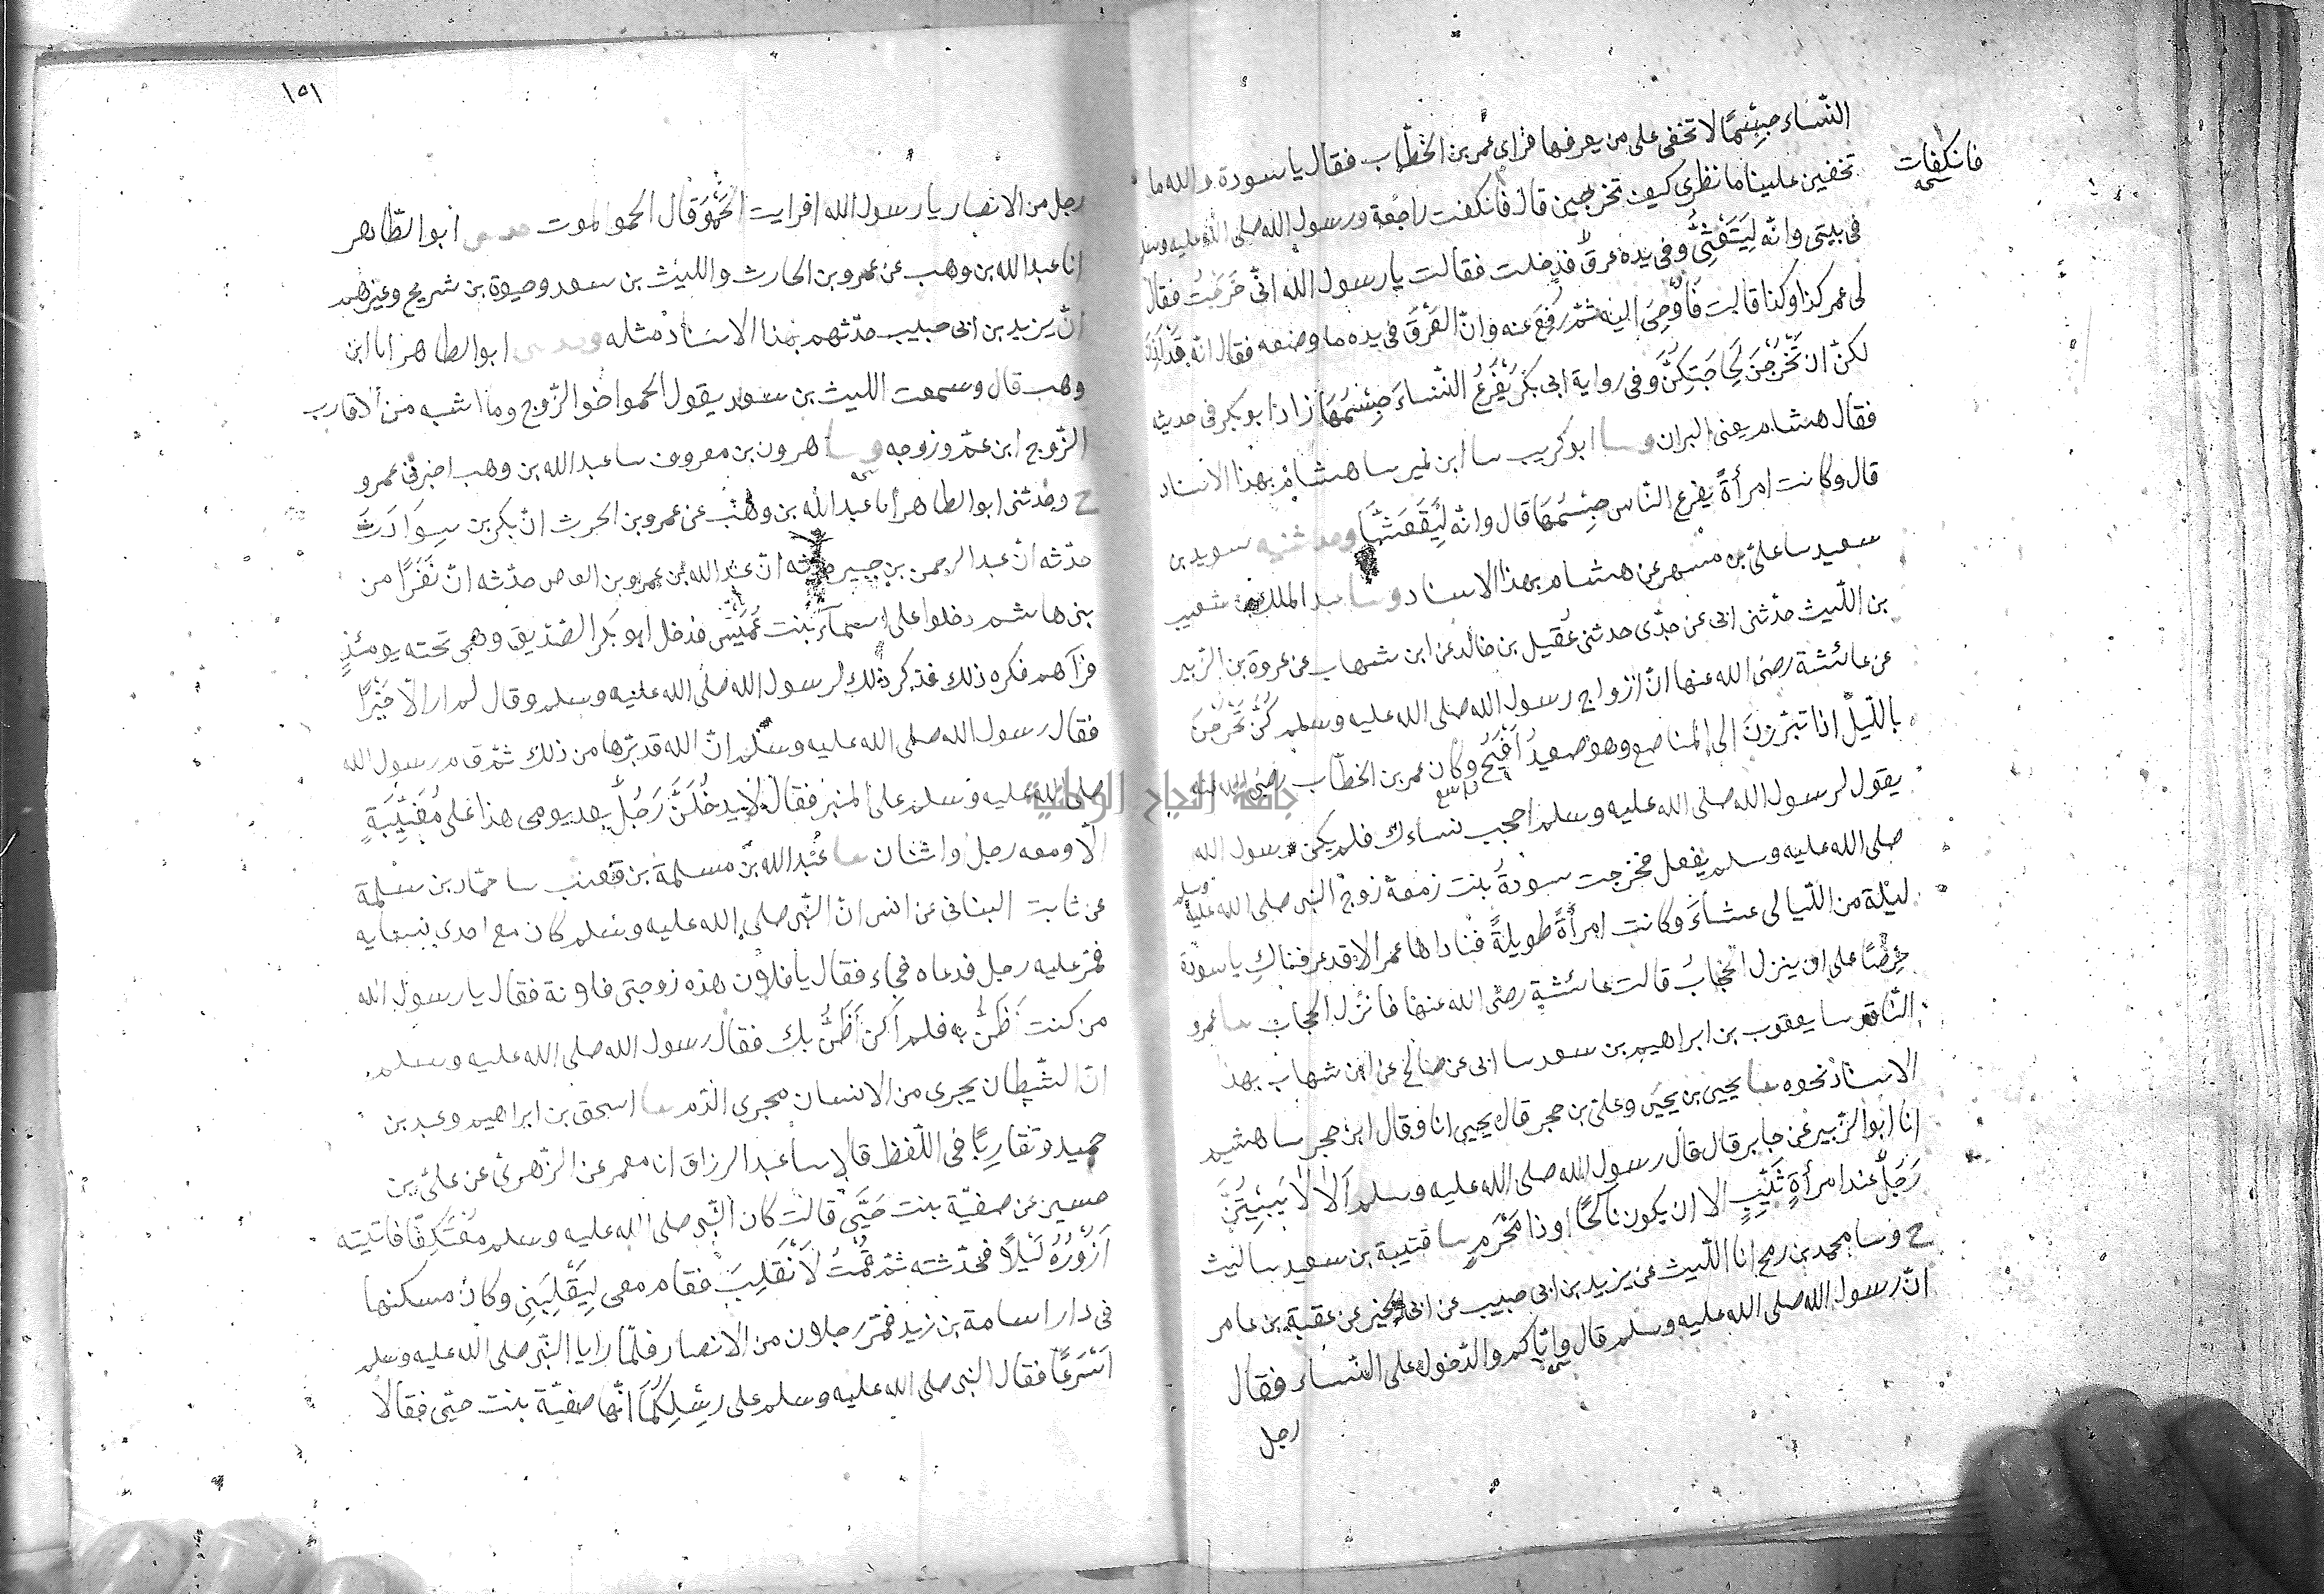 النساء جسما لا تخفى على من يعرفها فرآى عمر بن الخطاب فقال يا سودة والله ما
فانكفات
تخفين علينا فانظرى كيف تخرجين قال فانكفت راجعة ورسول الله صلى الله عليه وسلم
فى بيتى وانه ليتعشى وفى يده عرق فدخلت فقالت يا رسول الله انى خرجت فقال
لى عمر كذا وكذا قالت فاوحى اليه ثم رفع عنه وان العرق فى يده ما وضعه فقال انه قد اذن
لكن ان تخرجن لحاجتكن وفى رواية ابى بكر يفرع النساء جسمها زاد ابو بكر فى حديثه
فقال هشام يعنى البراز وسا ابو كريب سا ابن نمير سا هشام بهذا الاسناد
قال وكانت امرأة يفرع الناس جسمها قال وانه ليتعشى وحدثنيه سويد بن
سعيد سا على بن مسهر عن هشام بهذا الاسناد وسا عبد الملك بن شعيب
بن الليث حدثنى ابى عن جدى حدثنى عقيل بن خالد عن ابن شهاب عن عروة بن الزبير
عن عائشة رضى الله عنها ان ازواج رسول الله صلى الله عليه وسلم كن تخرجن
بالليل اذا تبرزن الى المناصع وهو صعيد افيح وكان عمر بن الخطاب رضى الله عنه
واسع
يقول لرسول الله صلى الله عليه وسلم احجب نساءك فلم يكن رسول الله
صلى الله عليه وسلم يفعل فخرجت سودة بنت زمعة زوج النبى صلى الله عليه وسلم
ليلة من الليالى عشاء وكانت امرأة طويلة فناداها عمر الا قد عرفناك يا سودة
حرصا على ان ينزل الحجاب قالت عائشة رضى الله عنها فانزل الحجاب سا عمرو
الناقد سا يعقوب بن ابراهيم بن سعد سا ابى عن صالح عن ابن شهاب بهذا
الاسناد نحوه سا يحيى بن يحيى وعلى بن حجر قال يحيى انا وقال ابن حجر سا هشيم
انا ابو الزبير عن جابر قال قال رسول الله صلى الله عليه وسلم الا لا يبيتن
رجل عند امرأة ثيب الا ان يكون ناكحا او ذا محرم سا قتيبة بن سعيد سا ليث
ح وسا محمد بن رمح انا الليث عن يزيد بن ابى حبيب عن ابى الخير عن عقبة بن عامر
ان رسول الله صلى الله عليه وسلم قال واياكم والدخول على النساء فقال
رجل
١٥١
رجل من الانصار يا رسول الله افرايت الحمو قال الحمو الموت ابو الطاهر
انا عبد الله بن وهب عن عمرو بن الحارث والليث بن سعد وحيوة بن شريح وغيرهم
ان يزيد بن ابى حبيب حدثهم بهذا الاسناد مثله ابو الطاهر انا ابن
وهب قال وسمعت الليث بن سعد يقول الحمو اخو الزوج وما اشبه من اقارب
الزوج ابن عم وزوجه وسا هرون بن معروف سا عبد الله بن وهب اخبرنى عمرو
ح وحدثنى ابو الطاهر انا عبد الله بن وهب عن عمرو بن الحرث ان بكر بن سوادة
حدثه ان عبد الرحمن بن جبير حدثه ان عبد الله بن عمرو بن العاص حدثه ان نفرا من
بنى هاشم دخلوا على اسماء بنت عميس فدخل ابو بكر الصديق وهى تحته يومئذ
فرآهم فكره ذلك فذكر ذلك لرسول الله صلى الله عليه وسلم وقال لم ار الا خيرا
فقال رسول الله صلى الله عليه وسلم ان الله قد برّها من ذلك ثم قام رسول الله
صلى الله عليه وسلم على المنبر فقال لا يدخلن رجل بعد يومى هذا على مغيبة
الا ومعه رجل او اثنان سا عبد الله بن مسلمة بن قعنب سا حماد بن سلمة
عن ثابت البنانى عن انس ان النبى صلى الله عليه وسلم كان مع احدى نسايه
فمر عليه رجل فدعاه فجاء فقال يا فلان هذه زوجتى فلانة فقال يا رسول الله
من كنت اظن به فلم اكن اظن بك فقال رسول الله صلى الله عليه وسلم
ان الشيطان يجرى من الانسان مجرى الدم سا اسحق بن ابراهيم وعبد بن
حميد وتقاربا فى اللفظ قالا سا عبد الرزاق انا معمر عن الزهرى عن على بن
حسين عن صفية بنت حيى قالت كان النبى صلى الله عليه وسلم معتكفا فاتيته
ازوره ليلا فحدثته ثم قمت لانقلب فقام معى ليقلبنى وكان مسكنها
فى دار اسامة بن زيد فمر رجلان من الانصار فلما رايا النبى صلى الله عليه وسلم
اسرعا فقال النبى صلى الله عليه وسلم على رسلكما انها صفية بنت حيى فقالا
جامعة النجاح الوطنية